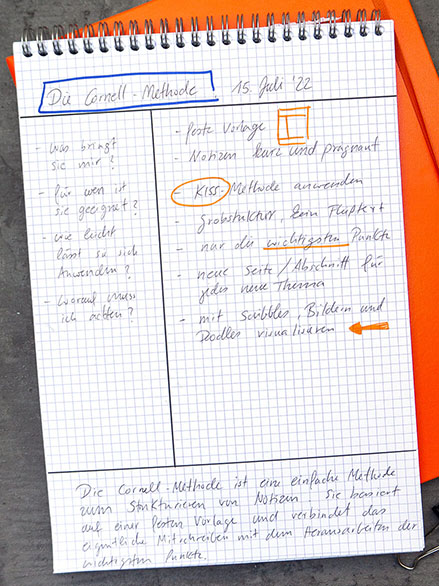 Die Cornell-Methode 15. Juli '22
- Was bringt
sie mir?
- für wen ist
sie geeignet?
- wie leicht
lässt sie sich
Anwenden?
- worauf muss
ich achten?
- feste Vorlage
- Notizen kurz und prägnant
- KISS-Methode anwenden
- Grobstuktur, kein Fließtext
- nur die wichtigsten Punkte
- neue Seite/Abschnitt für
jedes neue Thema
- mit Scribbles, Bildern und
Doodles visualisieren
Die Cornell-Methode ist eine einfache Methode
zum Strukturieren von Notizen. Sie basiert
auf einer festen Vorlage und verbindet das
eigentliche Mitschreiben mit dem Herausarbeiten der
wichtigsten Punkte.